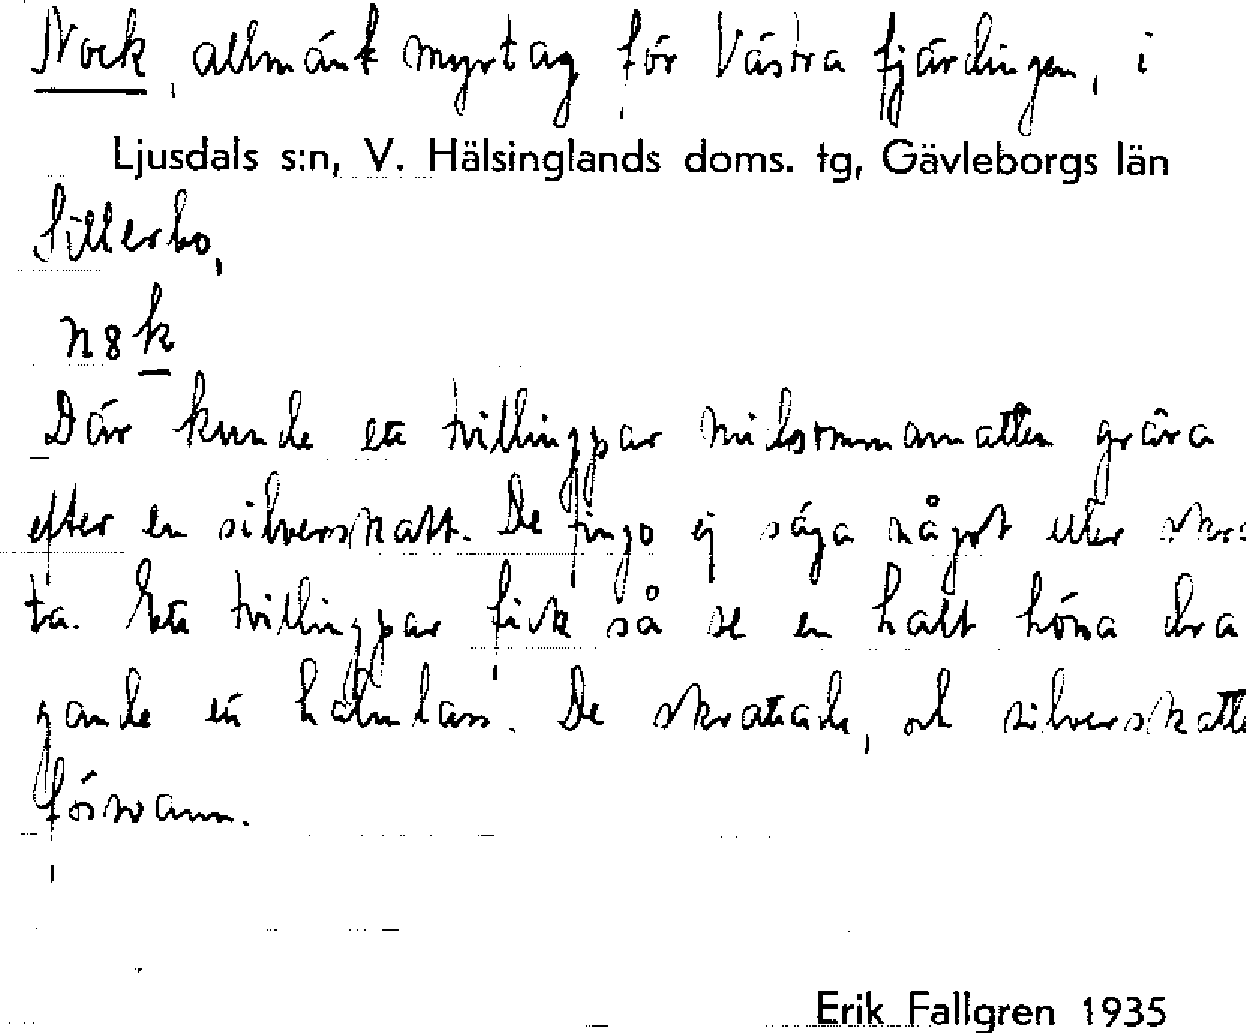 Nock, allmänt myrtag för Västra fjärdingen, i
Ljusdals s:n, V. Hälsinglands doms. tg, Gävleborgs län
Sillerbo,
n8k
Där kunde ett tvillingpar midsommarnatten gräva
efter en silverskatt. De fingo ej säga något eller skrat
ta. Ett tvillingpar fick så se en halt höna dra
gande ett halmlass. De skrattade, och silverskatten
försvann.
Erik Fallgren 1935